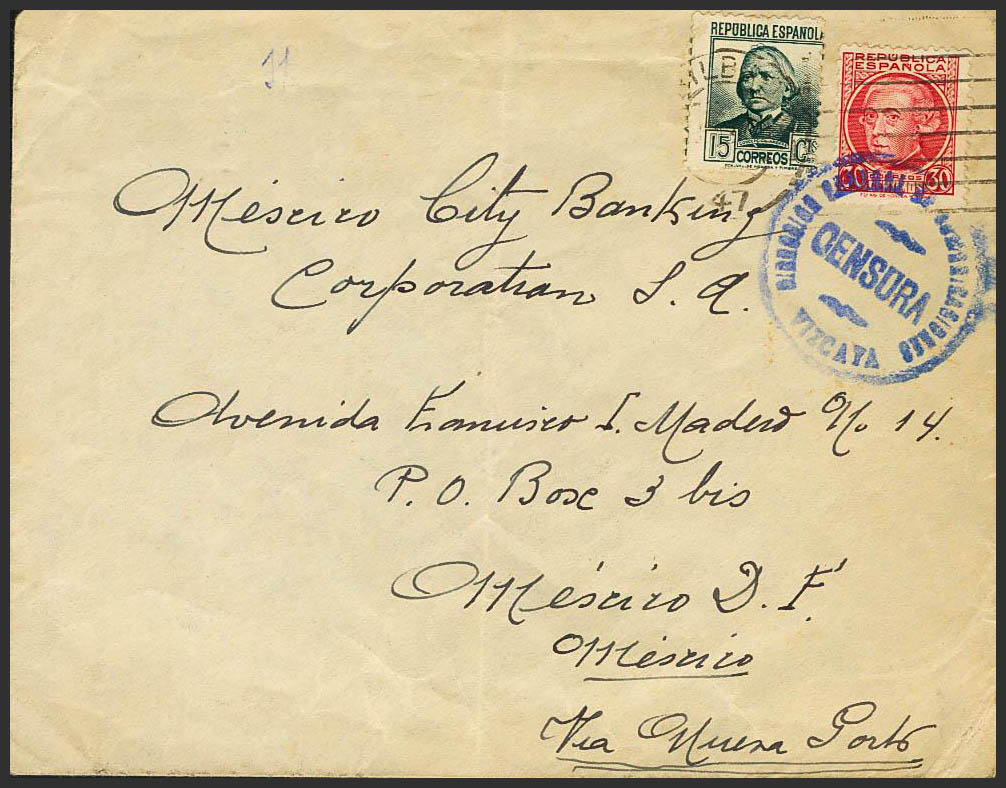 11
REPÚBLICA ESPAÑOLA
15 CORREOS CTS
REPÚBLICA
ESPAÑOLA
30 30
BILB
47
CENSURA
VIZCAYA COMUNICACIONES
México City Banking
Corporation S. A.
Avenida Francisco I. Madero No. 14.
P. O. Box 3 bis
México D. F.
México
Via Nueva York